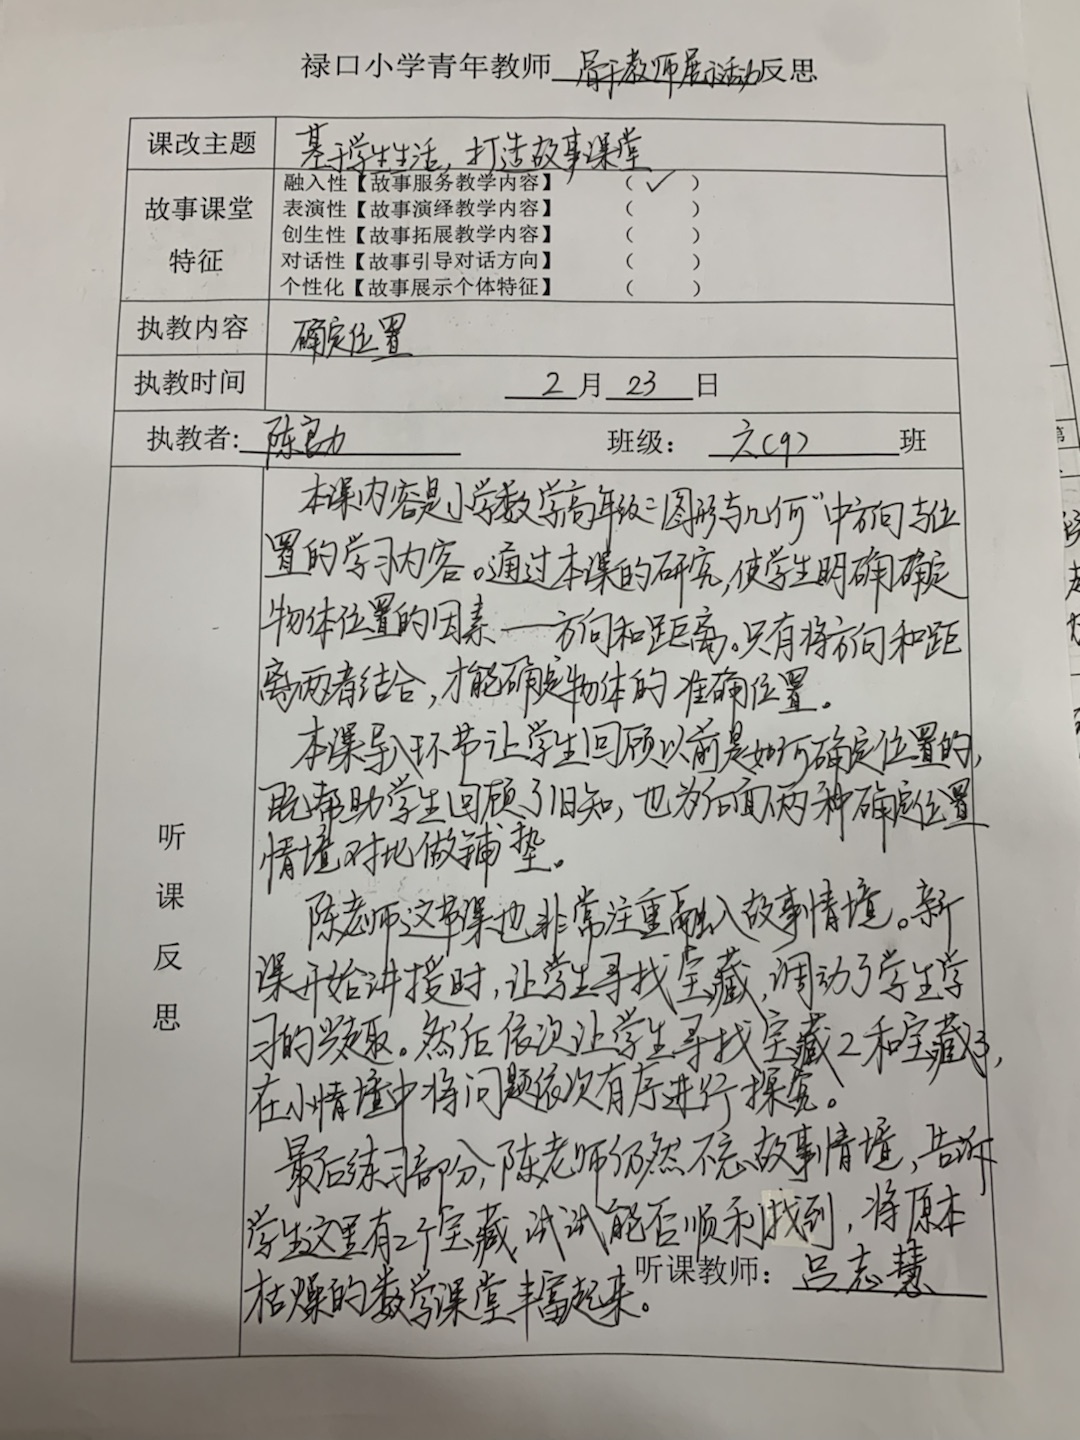 禄口小学青年教师骨干教师展示活动反思
课改主题 基于学生生活，打造故事课堂
故事课堂特征
融入性【故事服务教学内容】 （ ✓ ）
表演性【故事演绎教学内容】 （ ）
创生性【故事拓展教学内容】 （ ）
对话性【故事引导对话方向】 （ ）
个性化【故事展示个体特征】 （ ）
执教内容 确定位置
执教时间 2月23日
执教者: 陈良力 班级： 六(9) 班
听课反思
本课内容是小学数学高年级"图形与几何"中方向与位
置的学习内容。通过本课的研究，使学生明确确定
物体位置的因素——方向和距离。只有将方向和距
离两者结合，才能确定物体的准确位置。
本课导入环节让学生回顾以前是如何确定位置的，
既帮助学生回顾了旧知，也为后面两种确定位置
情境对比做铺垫。
陈老师这节课也非常注重融入故事情境。新
课开始讲授时，让学生寻找宝藏，调动了学生学
习的兴趣。然后依次让学生寻找宝藏2和宝藏3，
在小情境中将问题依次有序进行探究。
最后练习部分，陈老师仍然不忘故事情境，告诉
学生这里有2个宝藏，试试能否顺利找到，将原本
枯燥的数学课堂丰富起来。
听课教师： 吕志慧